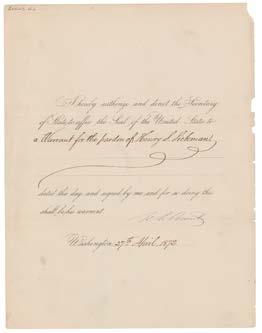 I hereby authorize and direct the Secretary
of State to affix the Seal of the United States to
a Warrant for the pardon of Henry S.
dated this day, and signed by me, and for so doing this
shall be his warrant.
U. S. Grant
Washington, 27th April, 1872.